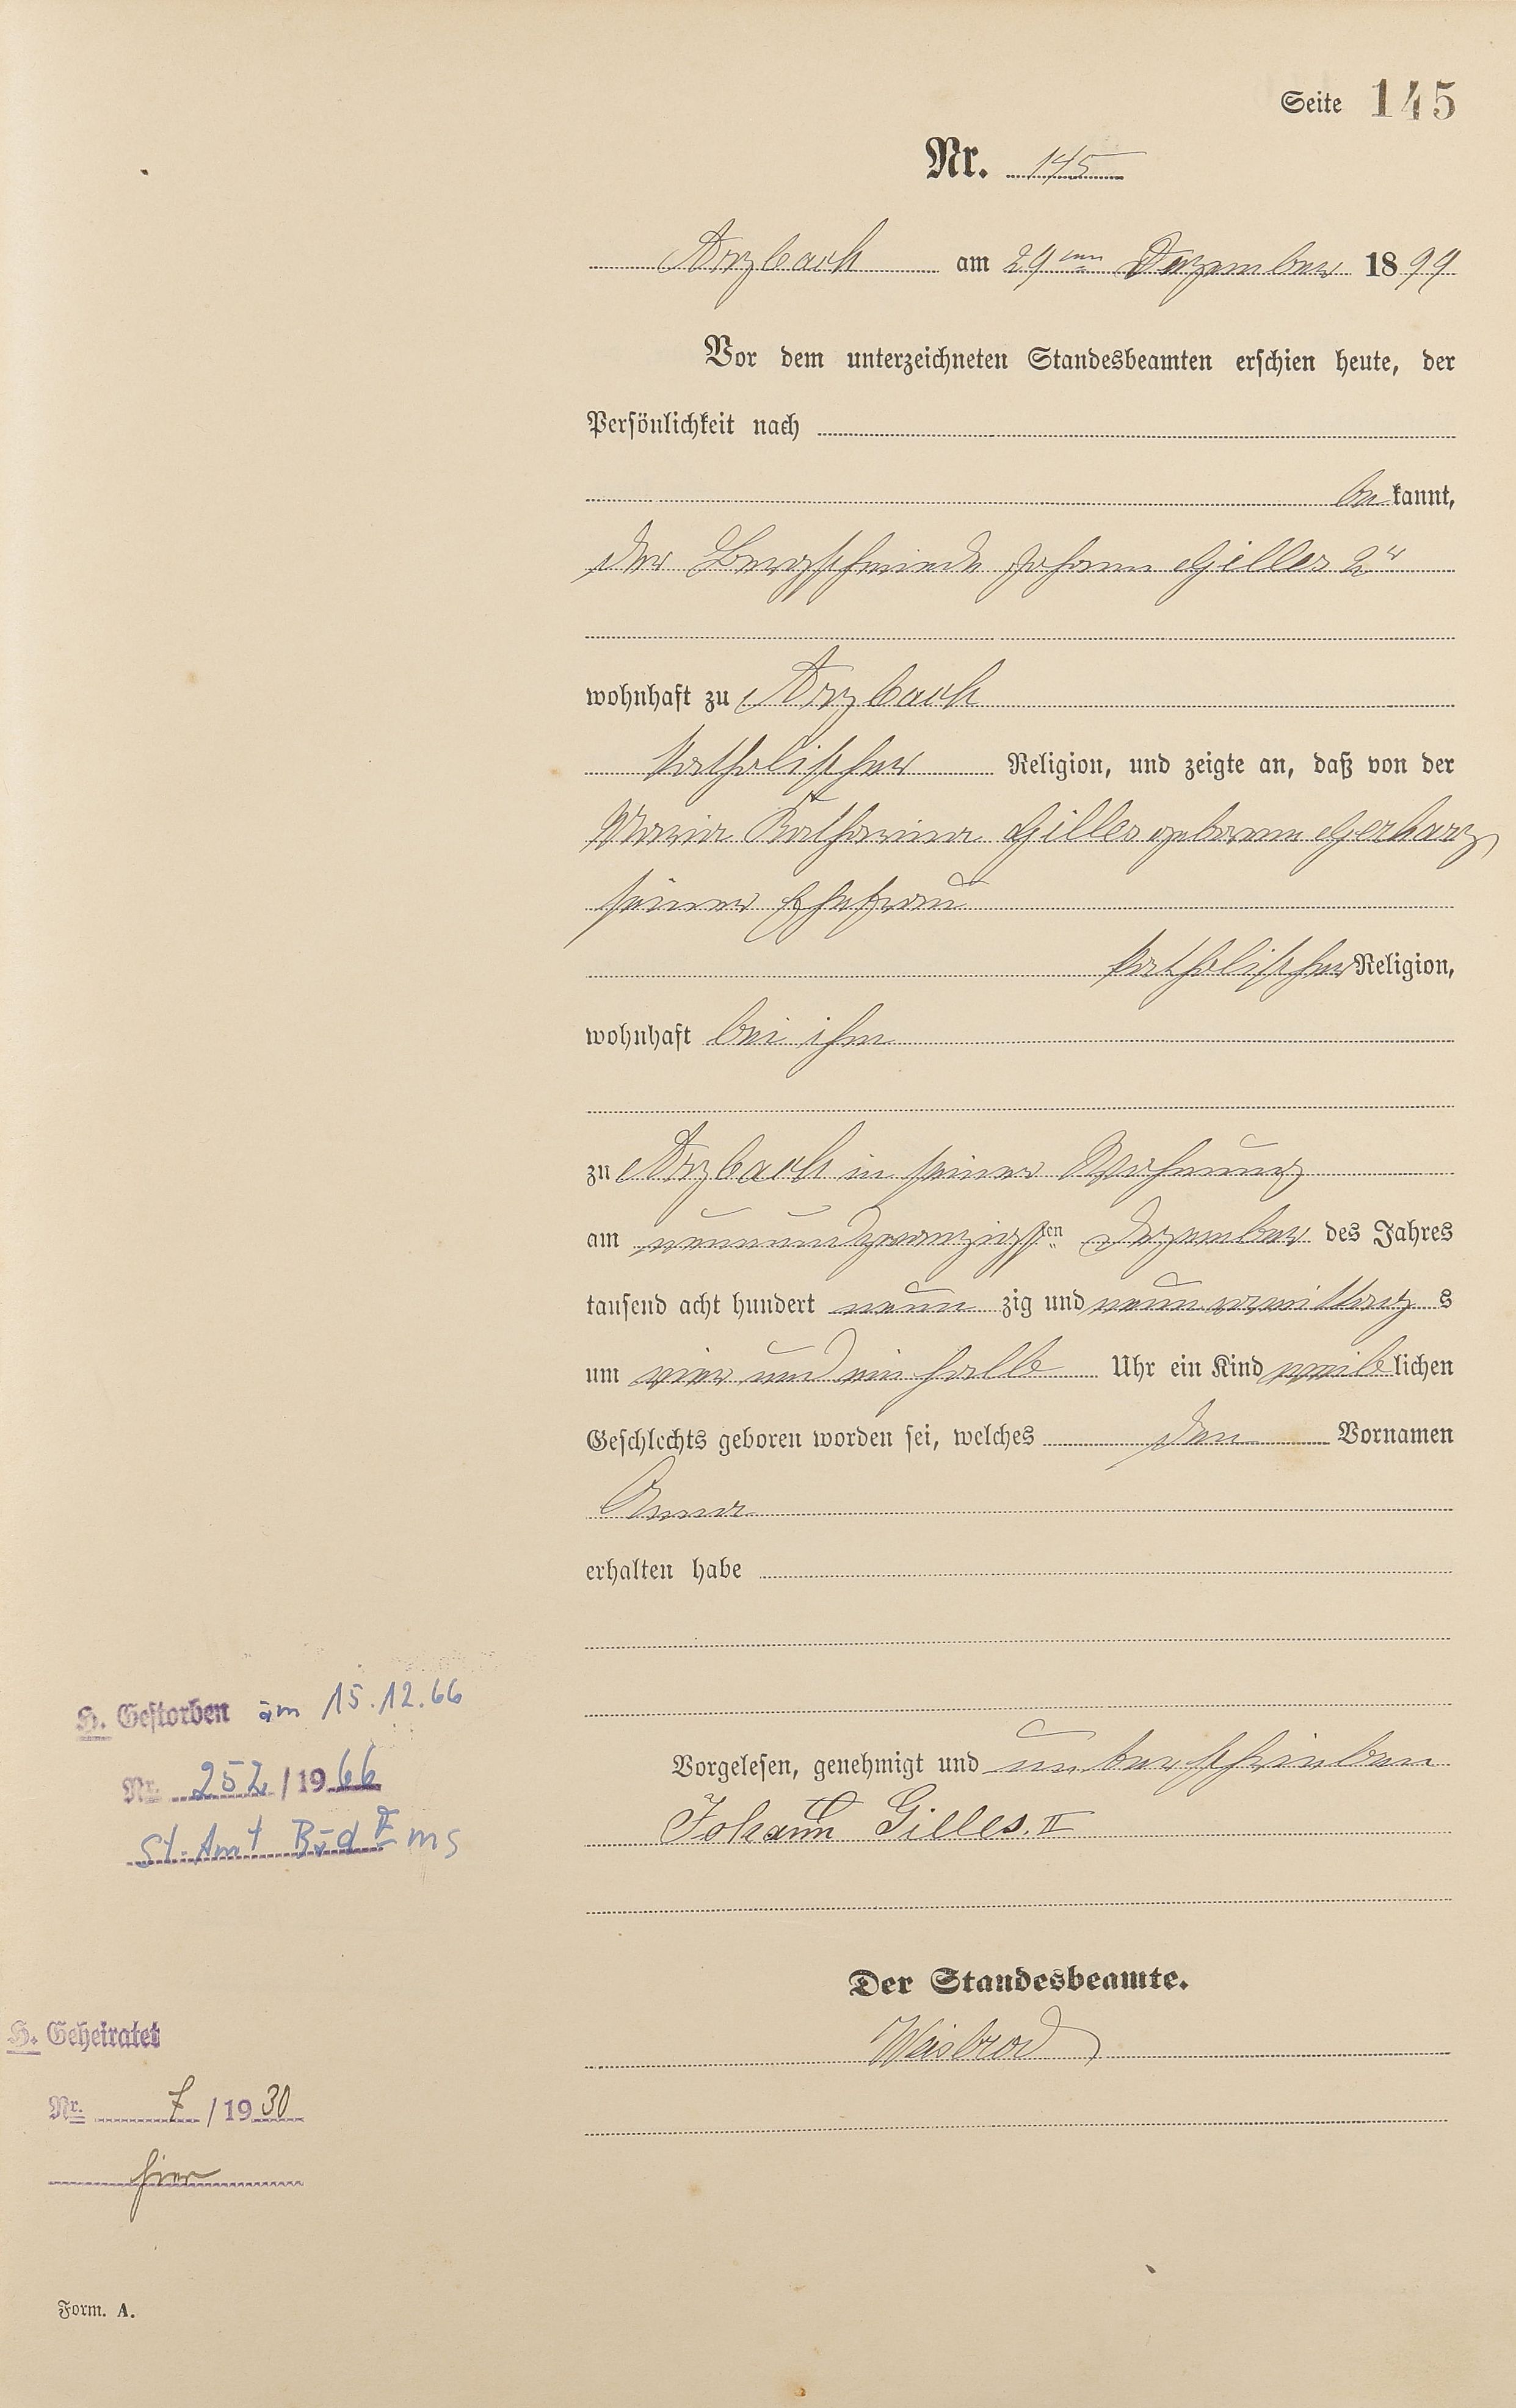 Seite 145
Nr. 145
Arzbach am 29ten Dezember 1899
Vor dem unterzeichneten Standesbeamten erschien heute, der
Persönlichkeit nach
bekannt,
der Bergschmiede Johann Gilles 2r
wohnhaft zu Arzbach
katholischer Religion, und zeigte an, daß von der
Maria Katharina Gilles geborene Gerharz,
seiner Ehefrau
katholischer Religion,
wohnhaft bei ihm
zu Arzbach in seiner Wohnung
am neunundzwanzigsten Dezember des Jahres
tausend acht hundert neun zig und neun vormittags
um vier und ein halb Uhr ein Kind weiblichen
Geschlechts geboren worden sei, welches den Vornamen
Anna
erhalten habe
H. Gestorben am 15.12.66
Nr. 252/1966
St. Amt Bad Ems
Vorgelesen, genehmigt und unterschrieben
Johann Gilles. II
Der Standesbeamte.
Weisbrod
H. Geheiratet
Nr. 7/1930
hier
Form. A.